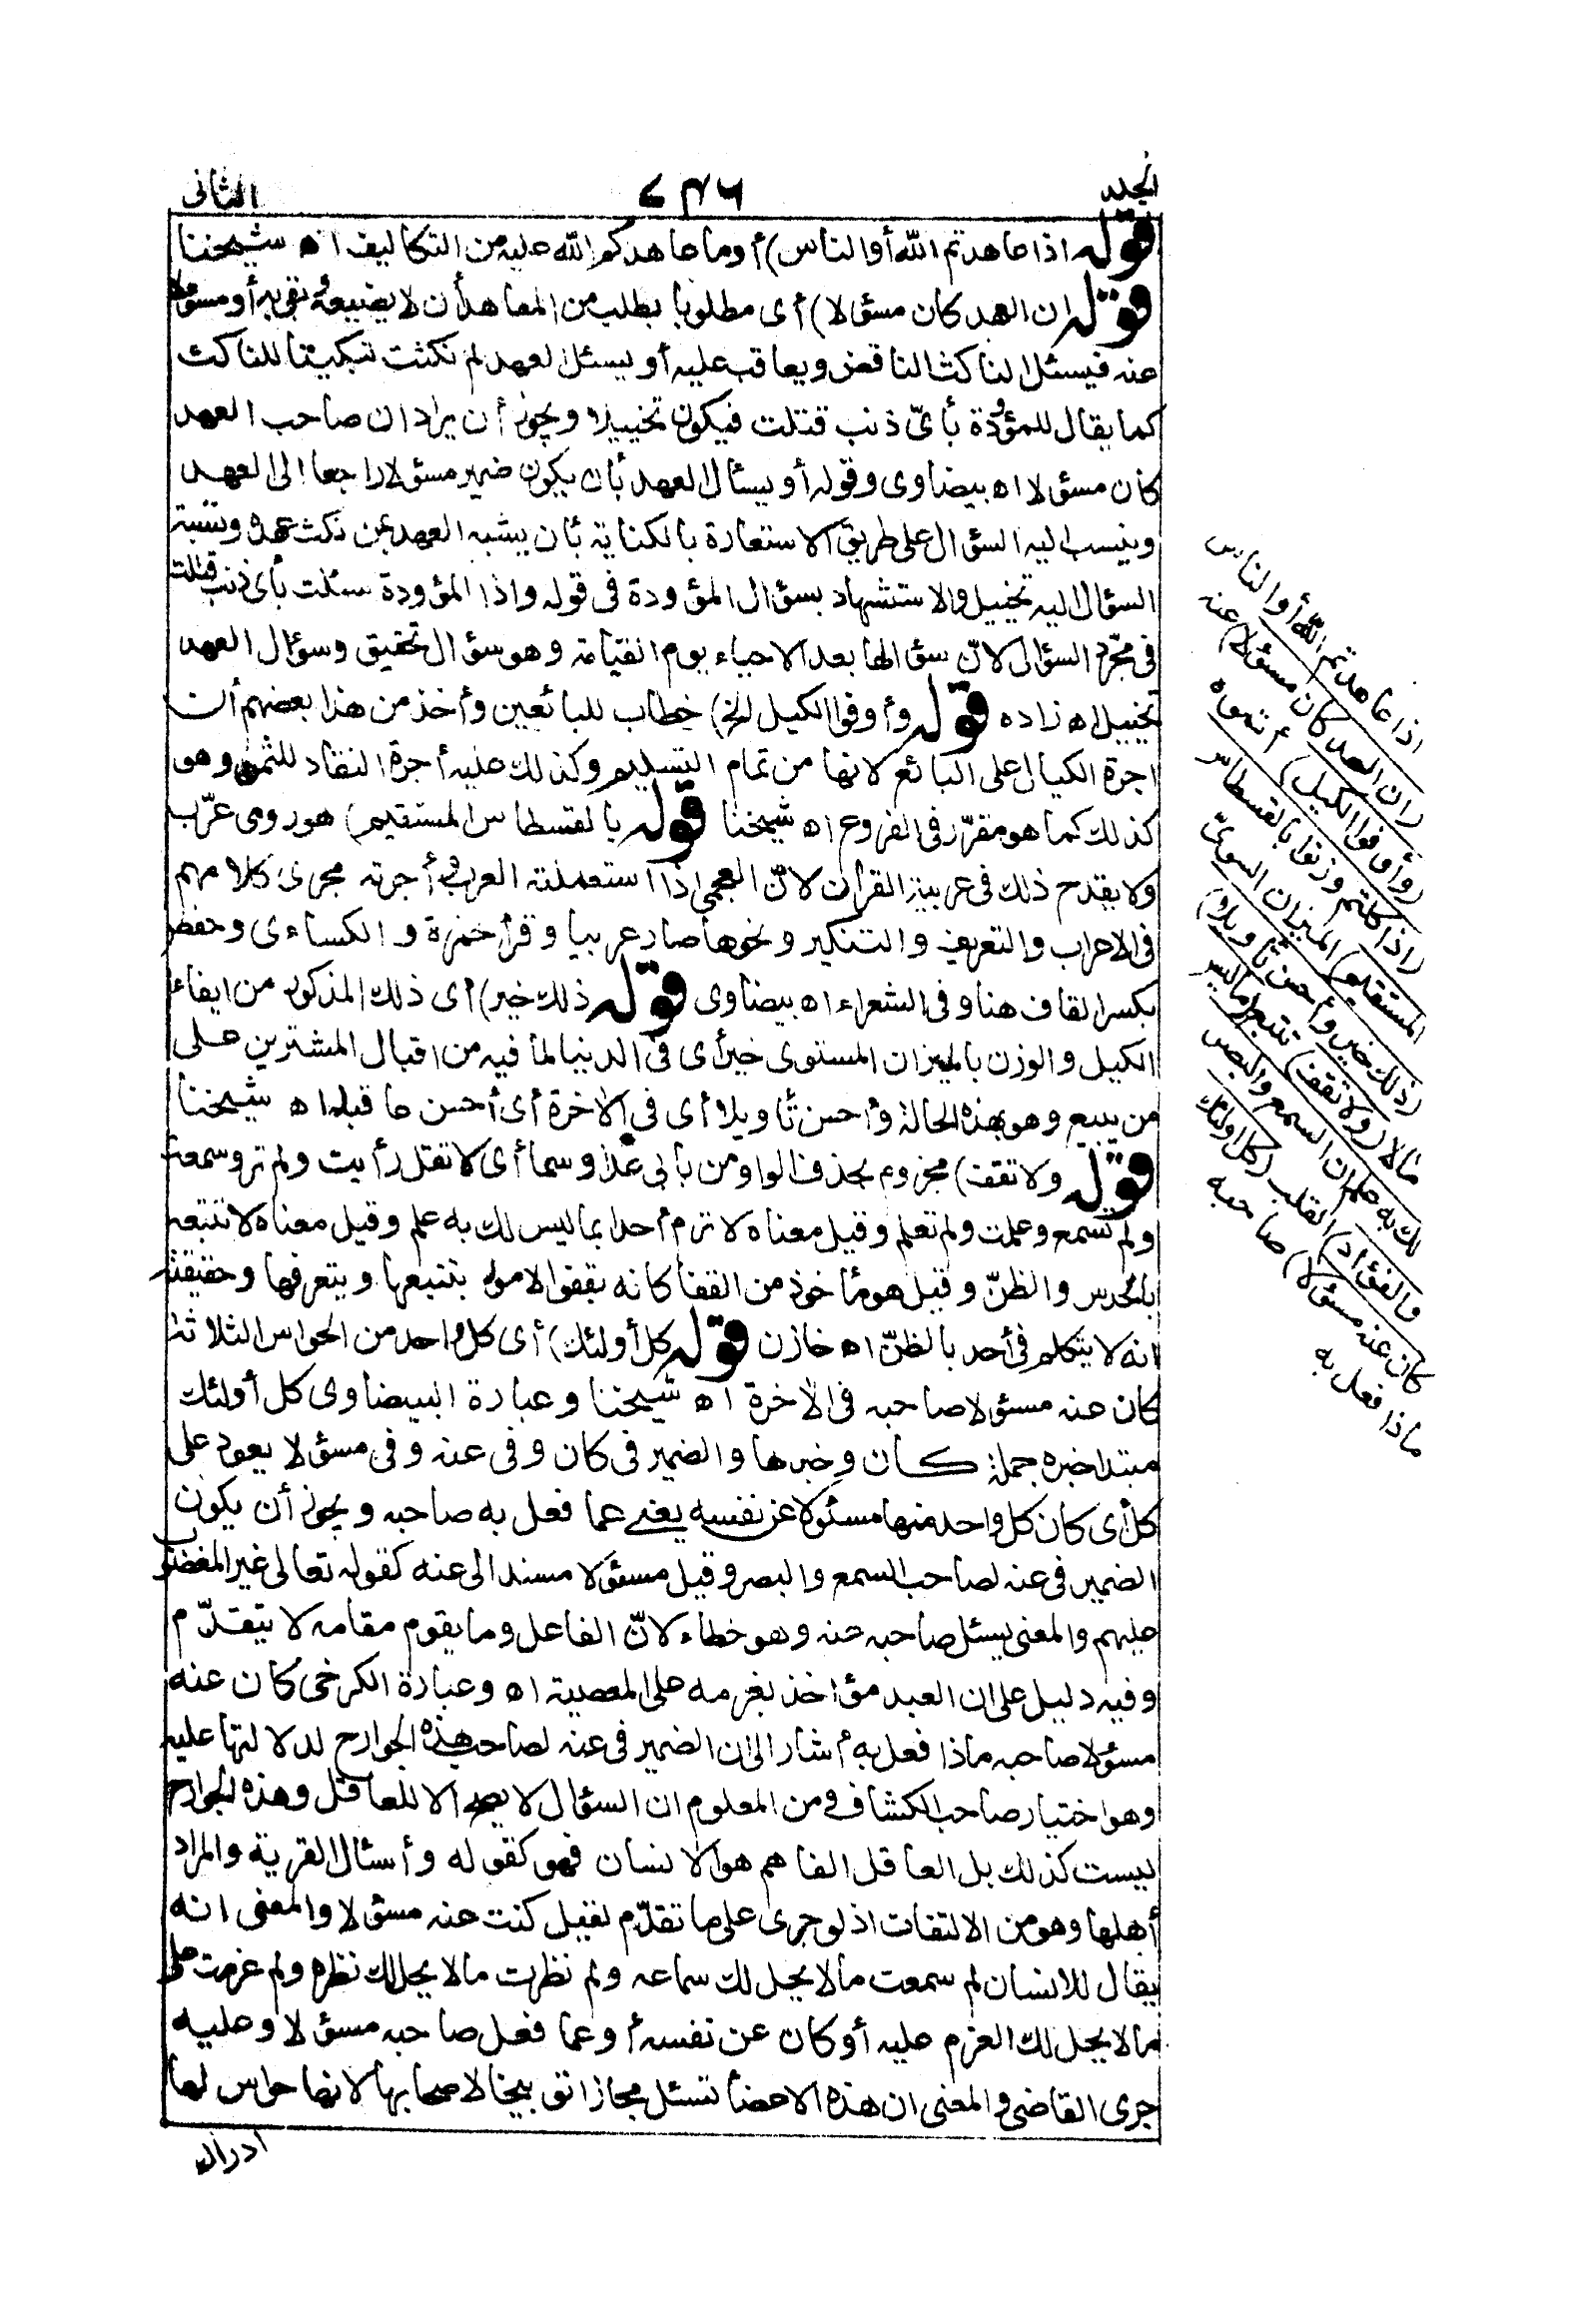 المجلد
٧٤٦
الثانى
قوله اذا عاهدتم الله أو الناس) أو ما عاهدكم الله عليه من التكاليف اه شيخنا
قوله ان العهد كان مسؤلا) أى مطلوبا يطلب من المعاهد أن لا يضيعه ويفى به أو مسؤلا
عنه فيسئل الناكث الناقض ويعاقب عليه أو يسئل العهد لم نكثت تبكيتا للناكث
كما يقال للموؤدة بأىّ ذنب قتلت فيكون تخييلا ويجوز أن يراد ان صاحب العهد
كان مسؤلا اه بيضاوى وقوله أو يسئال العهد بأن يكون ضمير مسؤلا راجعا الى العهد
وينسب اليه السؤال على طريق الاستعارة بالكناية بأن يشبه العهد بمن نكث عهده ونسبة
السؤال اليه تخييل والاستشهاد بسؤال المؤودة فى قوله واذا المؤودة سئلت بأى ذنب قتلت
فى مجرّد السؤال لانّ سؤالها بعد الاحياء يوم القيامة وهو سؤال تحقيق وسؤال العهد
تخييل اه زاده قوله وأوفوا الكيل الخ) خطاب للبائعين وأخذ من هذا بعضهم أن
اجرة الكيال على البائع لانها من تمام التسليم وكذلك عليه أجرة النقاد للثمن وهو
كذلك كما هو مقرّر فى الفروع اه شيخنا قوله بالقسطاس المستقيم) هو رومى عرّب
ولا يقدح ذلك فى عربية القران لانّ العجمى اذا استعملته العرب وأجرته مجرى كلامهم
فى الاعراب والتعريف والتنكير ونحوها صار عربيا وقرأ حمزة والكساءى وحفص
بكسر القاف هنا وفى الشعراء اه بيضاوى قوله ذلك خير) أى ذلك المذكور من ايفاء
الكيل والوزن بالميزان المستوى خير أى فى الدنيا لما فيه من اقبال المشترين على
من يبيع وهو بهذه الحالة وأحسن تأويلا أى فى الاخرة أى أحسن ما قبله اه شيخنا
قوله ولا تقف) مجزوم بحذف الواو من بابى عدا وسما أى لا تقل رأيت ولم تر وسمعت
ولم تسمع وعلمت ولم تعلم وقيل معناه لا ترم أحدا بما ليس لك به علم وقيل معناه لا تتبعه
بالحدس والظنّ وقيل هو مأخوذ من القفا كانه يقفو الامور يتتبعها ويتعرفها وحقيقته
انه لا يتكلم فى أحد بالظنّ اه خازن قوله كل أولئك) أى كل واحد من الحواس الثلاثة
كان عنه مسؤلا صاحبه فى الاخرة اه شيخنا وعبارة البيضاوى كل أولئك
مبتدا خبره جملة كان وخبرها والضمير فى كان وفى عنه وفى مسؤلا يعود على
كل أى كان كل واحد منها مسئولا عن نفسه يعنى عما فعل به صاحبه ويجوز أن يكون
الضمير فى عنه لصاحب السمع والبصر وقيل مسؤلا مسند الى عنه كقوله تعالى غير المغضوب
عليهم والمعنى يسئل صاحبه عنه وهو خطاء لانّ الفاعل وما يقوم مقامه لا يتقدّم
وفيه دليل على ان العبد مؤاخذ بعزمه على المعصية اه وعبارة الكرخى كان عنه
مسؤلا صاحبه ماذا فعل به أشار الى ان الضمير فى عنه لصاحب هذه الجوارح لدلالتها عليه
وهو اختيار صاحب الكشاف ومن المعلوم ان السؤال لا يصح الا للعاقل وهذه الجوارح
ليست كذلك بل العاقل الفاهم هو الانسان فهو كقوله وأسئال القرية والمراد
أهلها وهو من الالتفات اذ لو جرى على ما تقدّم لقيل كنت عنه مسؤلا والمعنى انه
يقال للانسان لم سمعت مالا يحل لك سماعه ولم نظرت مالا يحل لك نظره ولم عزمت على
مالا يحل لك العزم عليه أو كان عن نفسه أو عما فعل صاحبه مسؤلا وعليه
جرى القاضى والمعنى ان هذه الاعضأ تسئل مجازا توبيخا لاصحابها لانها حواس لها
ادراك
اذا عاهدتم الله أو الناس
(ان العهد كان مسؤلا) عنه
(وأوفوا الكيل) أتموه
(اذا كلتم وزنوا بالقسطاس
المستقيم) الميزان السوىّ
(ذلك خير وأحسن تأويلا)
مألا (ولا تقف) تتبع (ما ليس
لك به علم ان السمع والبصر
والفؤاد) القلب (كل اولئك
كان عنه مسؤلا) صاحبه
ماذا فعل به